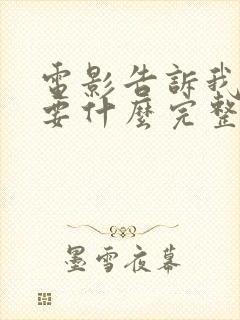 電影告訴我
要什麼完整
墨雪夜幕